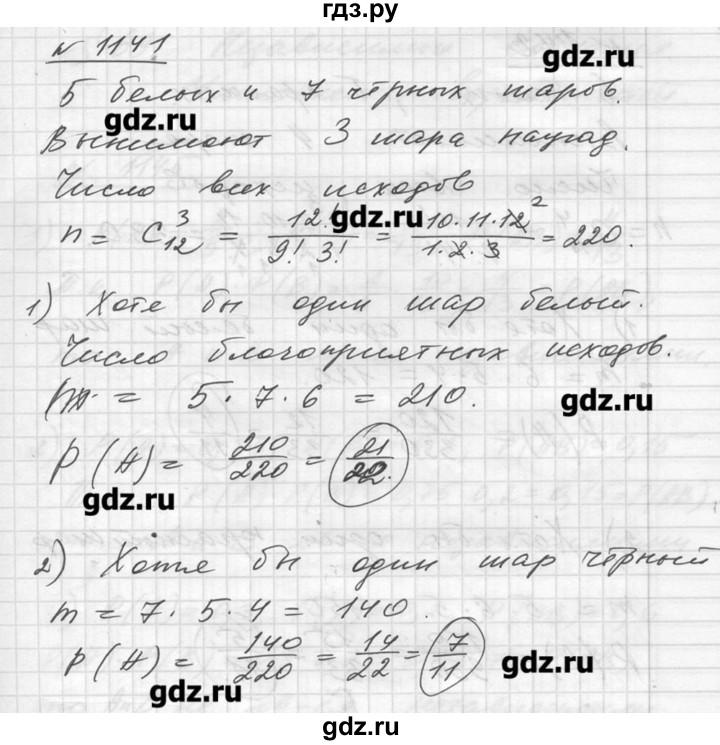 гдз.ру
№ 1141
gdz.ru
5 белых и 7 чёрных шаров.
gdz.ru
Вынимают 3 шара наугад.
Число всех исходов
gdz.ru
n = C₁₂³ = 12!/9! 3! = 10·11·12²/1·2·3 = 220.
1) Хотя бы один шар белый.
Число благоприятных исходов.
m = 5·7·6 = 210.
gdz.ru
P(A) = 210/220 = 21/22.
gdz.ru
2) Хотя бы один шар чёрный
m = 7·5·4 = 140.
P(A) = 140/220 = 14/22 = 7/11
gdz.ru
gdz.ru
gdz.ru